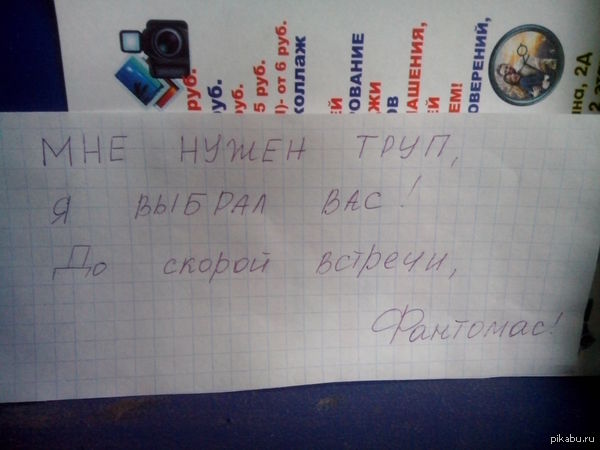 МНЕ НУЖЕН ТРУП,
Я ВЫБРАЛ ВАС!
До скорой встречи,
Фантомас!
руб.
руб.
5 руб.
)- от 6 руб.
коллаж
РОВАНИЕ
ЖИ
ОВ
ЛАШЕНИЯ,
ЕЙ
ЕМ!
ОВЕРЕНИЙ,
на, 2Д
2 эта
pikabu.ru